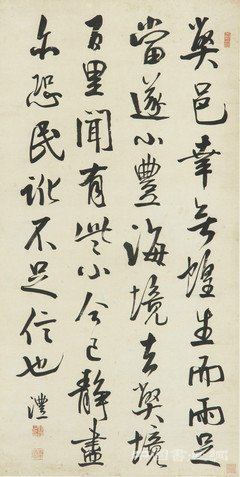 獘邑幸無蝗生而雨足
當遂小豐海境去獘境
百里聞有些小今已靜盡
亦恐民訛不足信也